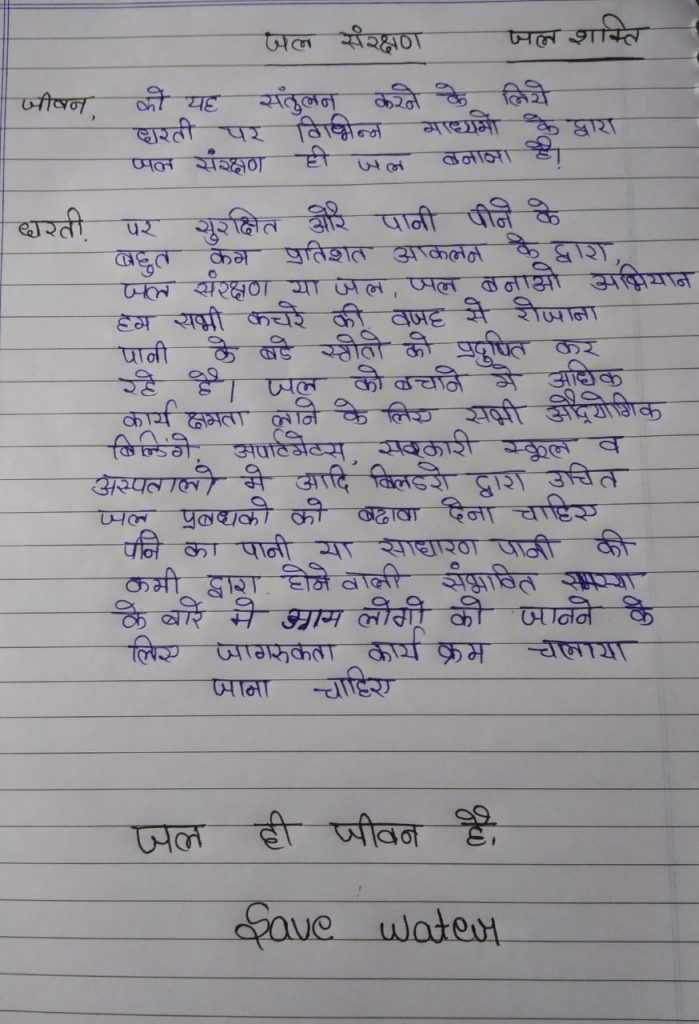 जल संरक्षण जल शक्ति
जीवन, को यह संतुलन करने के लिये
धरती पर विभिन्न माध्यमो के द्वारा
जल संरक्षण ही जल बनाना है।
धरती. पर सुरक्षित और पानी पीने के
बहुत कम प्रतिशत आकलन के द्वारा,
जल संरक्षण या जल, जल बनाओ अभियान
हम सभी कचरे की वजह से रोजाना
पानी के बडे स्त्रोतो को प्रदुषित कर
रहे है। जल को बचाने मे अधिक
कार्य क्षमता लाने के लिए सभी औद्योगिक
बिल्डिंगे, अर्पाटमेंटस, सरकारी स्कूल व
अस्पतालो मे आदि बिलडरो द्वारा उचित
जल प्रबधको को बढावा देना चाहिए
पीने का पानी या साधारण पानी की
कमी द्वारा होने वाली संभावित समस्या
के बारे मे आम लोगो को जानने के
लिए जागरुकता कार्य क्रम चलाया
जाना चाहिए
जल ही जीवन है,
Save water